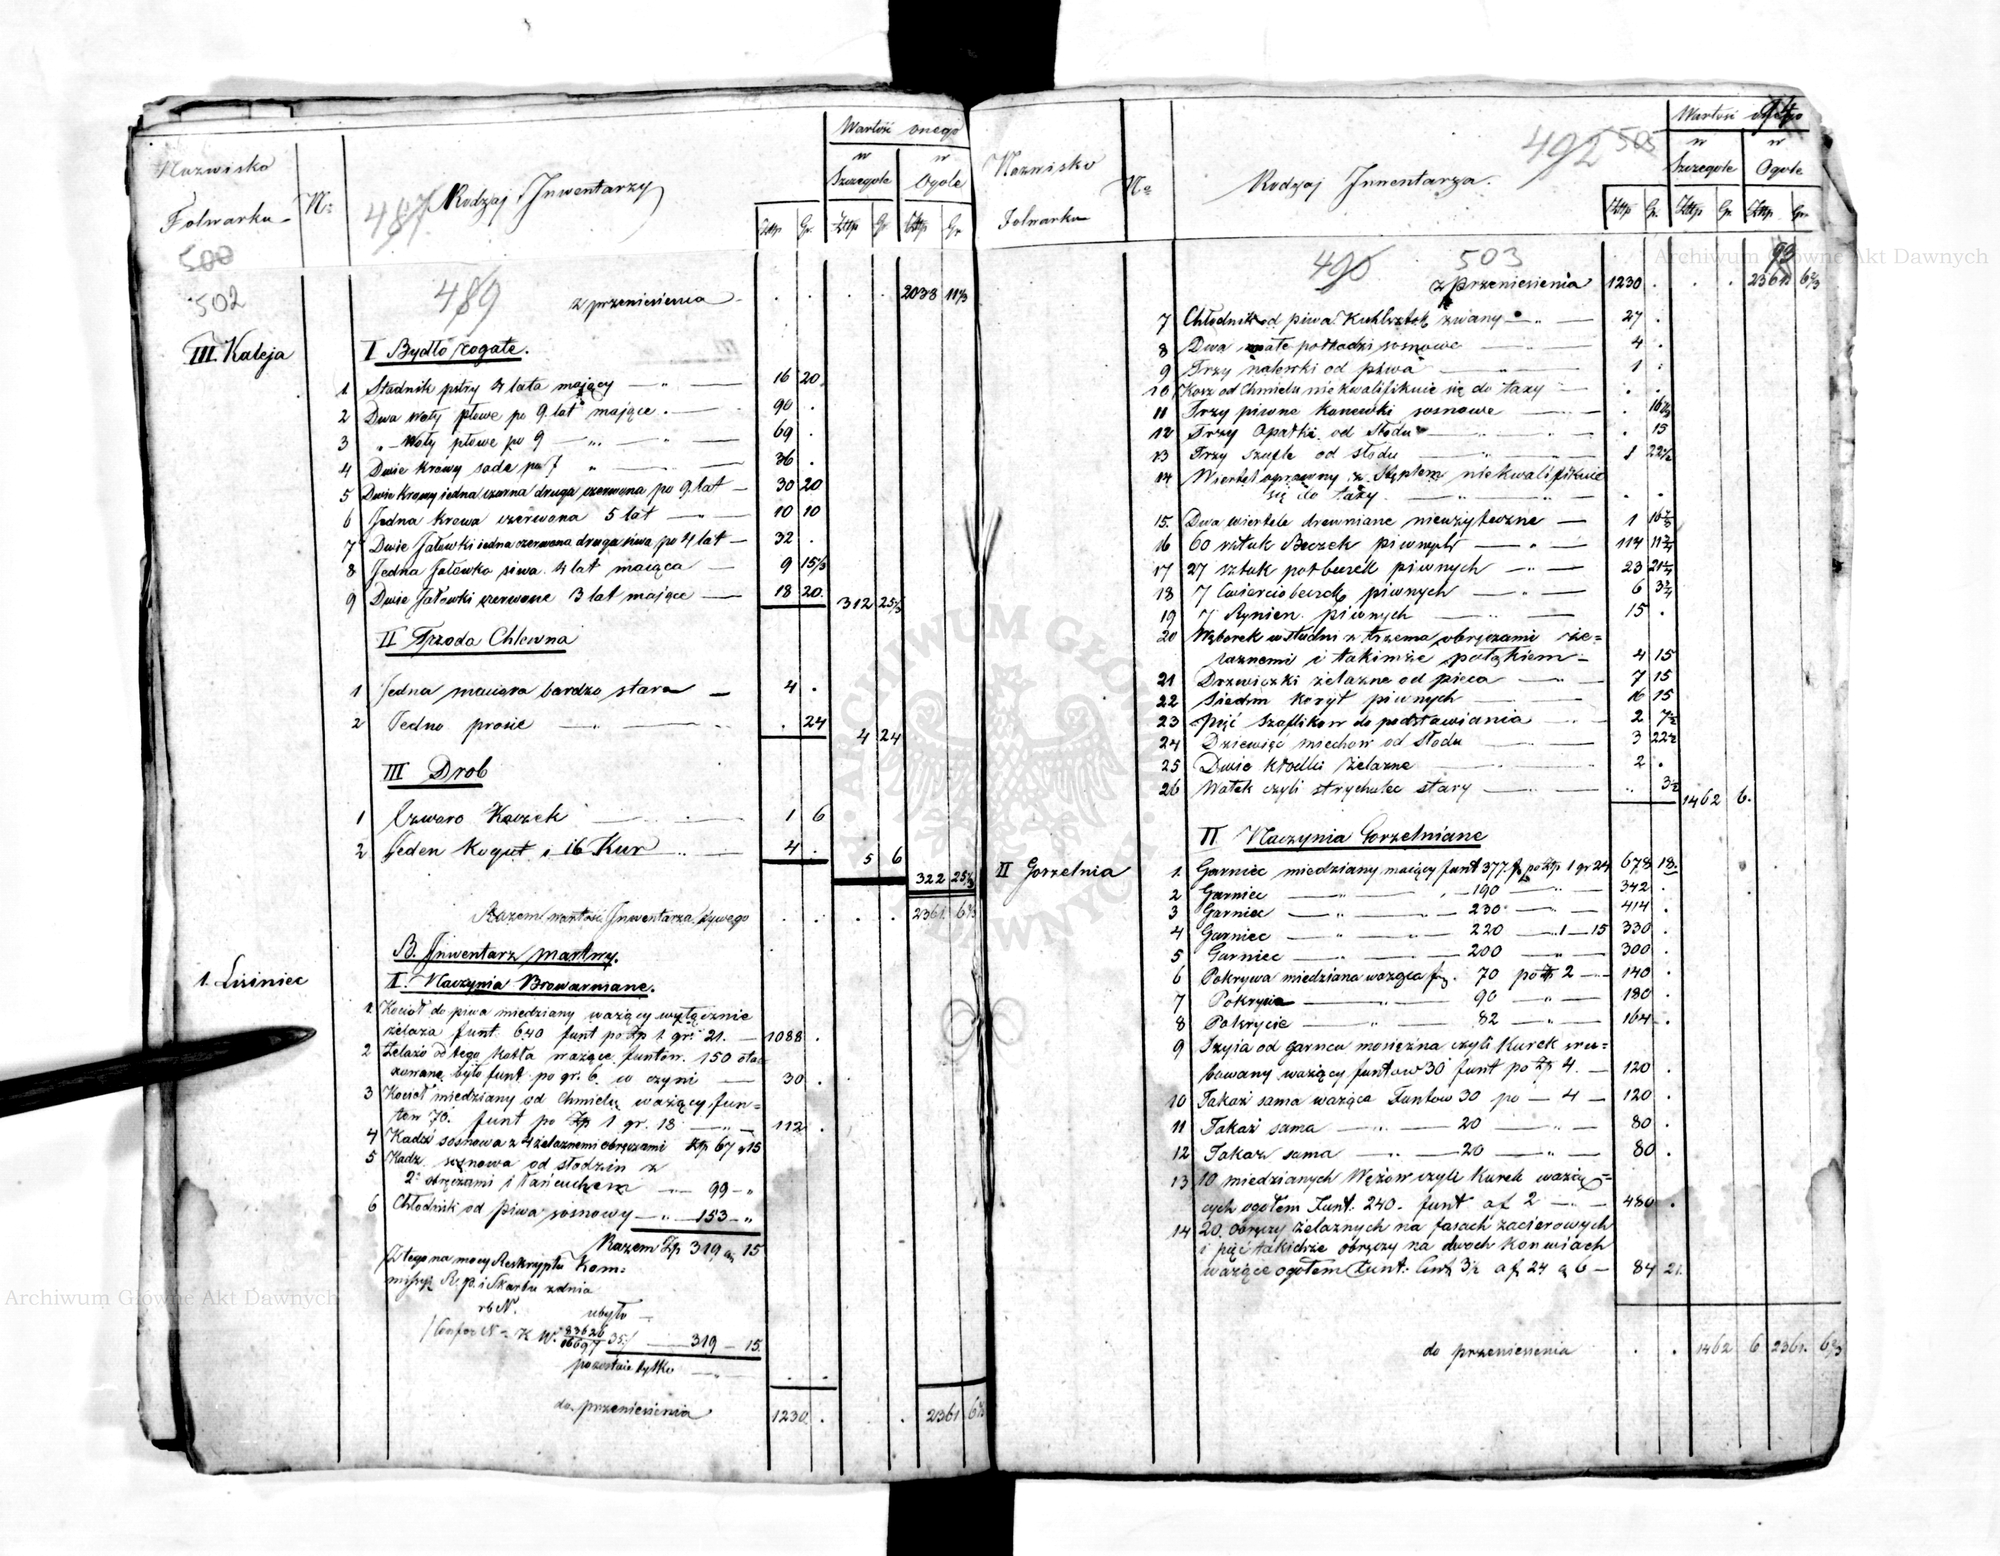 Nazwisko Folwarku
Nr
Rodzaj Inwentarzy
Wartość onego
w Szczególe
w Ogóle
Ztp Gr. Ztp Gr. Ztp Gr.
487
500
502
489
z przeniesienia 2038 11 1/3
III. Kaleja
I Bydło rogate.
1 Stadnik pstry 4 lata mający 16 20
2 Dwa Woły płowe po 9 lat mające 90 .
3 " Woły płowe po 9 69 .
4 Dwie krowy sade po 7 " 36 .
5 Dwie Krowy iedna czarna druga czerwona po 9 lat 30 20
6 Jedna krowa czerwona 5 lat 10 10
7 Dwie Jałowki iedna czerwona druga siwa po 4 lat 32 .
8 Jedna Jałowka siwa 4 lat maiąca 9 15 1/3
9 Dwie Jałowki czerwone 3 lat mające 18 20 312 25 1/3
II Trzoda Chlewna
1 Jedna maciora bardzo stara 4 .
2 Jedno prosie . 24 4 24
III Drob
1 Czworo Kaczek 1 6
2 Jeden Kogut i 16 Kur 4 . 5 6
322 25 1/3
Razem wartość Inwentarza żywego 2361. 6 2/3
B. Inwentarz martwy.
1. Lisiniec
I. Naczynia Browarniane.
1. Kocioł do piwa miedziany ważący wyłącznie
żelaza funt. 640 funt po Ztp 1 gr. 21. 1088 .
2 Żelazo od tego kotła ważące funtow. 150
szowane było funt po gr. 6. w czyni 30 .
3 Kocioł miedziany od Chmielu ważący fun=
tow 70. funt po Ztp 1 gr. 18 112 .
4 Kadź sosnowa z 4 żelaznemi obręczami Ztp 67 15
5 Kadz sosnowa od słodzin z
2 obręczami i łańcuchem 99 "
6 Chłodnik od piwa sosnowy 153 "
Razem Ztp 319 15
Z tego na mocy Reskryptu Kom=
missyi R. p. i Skarbu z dnia
rb N. ubyło
N K W. 83626/16697 35 319 15.
pozostaie tylko
do przeniesienia 1230. . 2361 6 2/3
Nazwisko Folwarku
Nr
Rodzaj Inwentarza.
Wartość
w Szczególe
w Ogóle
Ztp Gr. Ztp Gr. Ztp Gr.
94
492 505
490 503
93
z przeniesienia 1230 . . . 2361 6 2/3
7 Chłodnik od piwa Kuhlsztok zwany 27 .
8 Dwa małe połkadzi sosnowe 4 .
9 Trzy nalewki od piwa 1 .
10 Kosz od Chmielu niekwalifikuie się do taxy . .
11 Trzy piwne konewki sosnowe . 16
12 Trzy Opałki od Słodu . 15
13 Trzy szufle od słodu 1 22 1/2
14 Wiertel oprawny z Stęplem niekwalifikuie
się do taxy . .
15. Dwa wiertele drewniane nieużyteczne 1 16
16 60 sztuk Beczek piwnych 114 11
17 27 sztuk połbeczek piwnych 23 21
18 7 Cwierciobeczek piwnych 6 3
19 7 Rynien piwnych 15 .
20 Węborek w studni z trzema obręczami że=
laznemi i takimże pałąkiem 4 15
21 Drzwiczki żelazne od pieca 7 15
22 Siedm koryt piwnych 16 15
23 Pięć Szaflikow do podstawiania 2 7 1/2
24 Dziewięć miechow od słodu 3 22 1/2
25 Dwie kłodki żelazne 2 .
26 Wałek czyli strychulec stary . 3 1/2 1462 6.
II Gorzelnia
II Naczynia Gorzelniane
1. Garniec miedziany maiący funt 377. po Ztp 1 gr 24 678 18.
2 Garniec 190 342 .
3 Garniec 230 414 .
4 Garniec 220 1 15 330 .
5 Garniec 200 300 .
6 Pokrywa miedziana ważąca 70 po Ztp 2 140 .
7 Pokrywa 90 180 .
8 Pokrycie 82 164 .
9 Szyia od garnca mosiężna czyli Kurek
bowany ważący funtow 30 funt po Ztp 4. 120 .
10 Takaż sama ważąca Funtow 30 po 4 120 .
11 Takaż sama 20 80 .
12 Takaż sama 20 80 .
13 10 miedzianych Wężow czyli Kurek ważą=
cych ogółem Funt. 240. funt af 2 480 .
14 20 obręczy żelaznych na fasach zacierowych
i pięć takichże obręczy na dwoch konwiach
ważące ogółem funt. Cent 3 1/2 af 24 a 6 84 21.
do przeniesienia . . 1462 6 2361. 6 2/3
ARCHIWUM GŁÓWNE AKT DAWNYCH
Archiwum Główne Akt Dawnych
Archiwum Główne Akt Dawnych